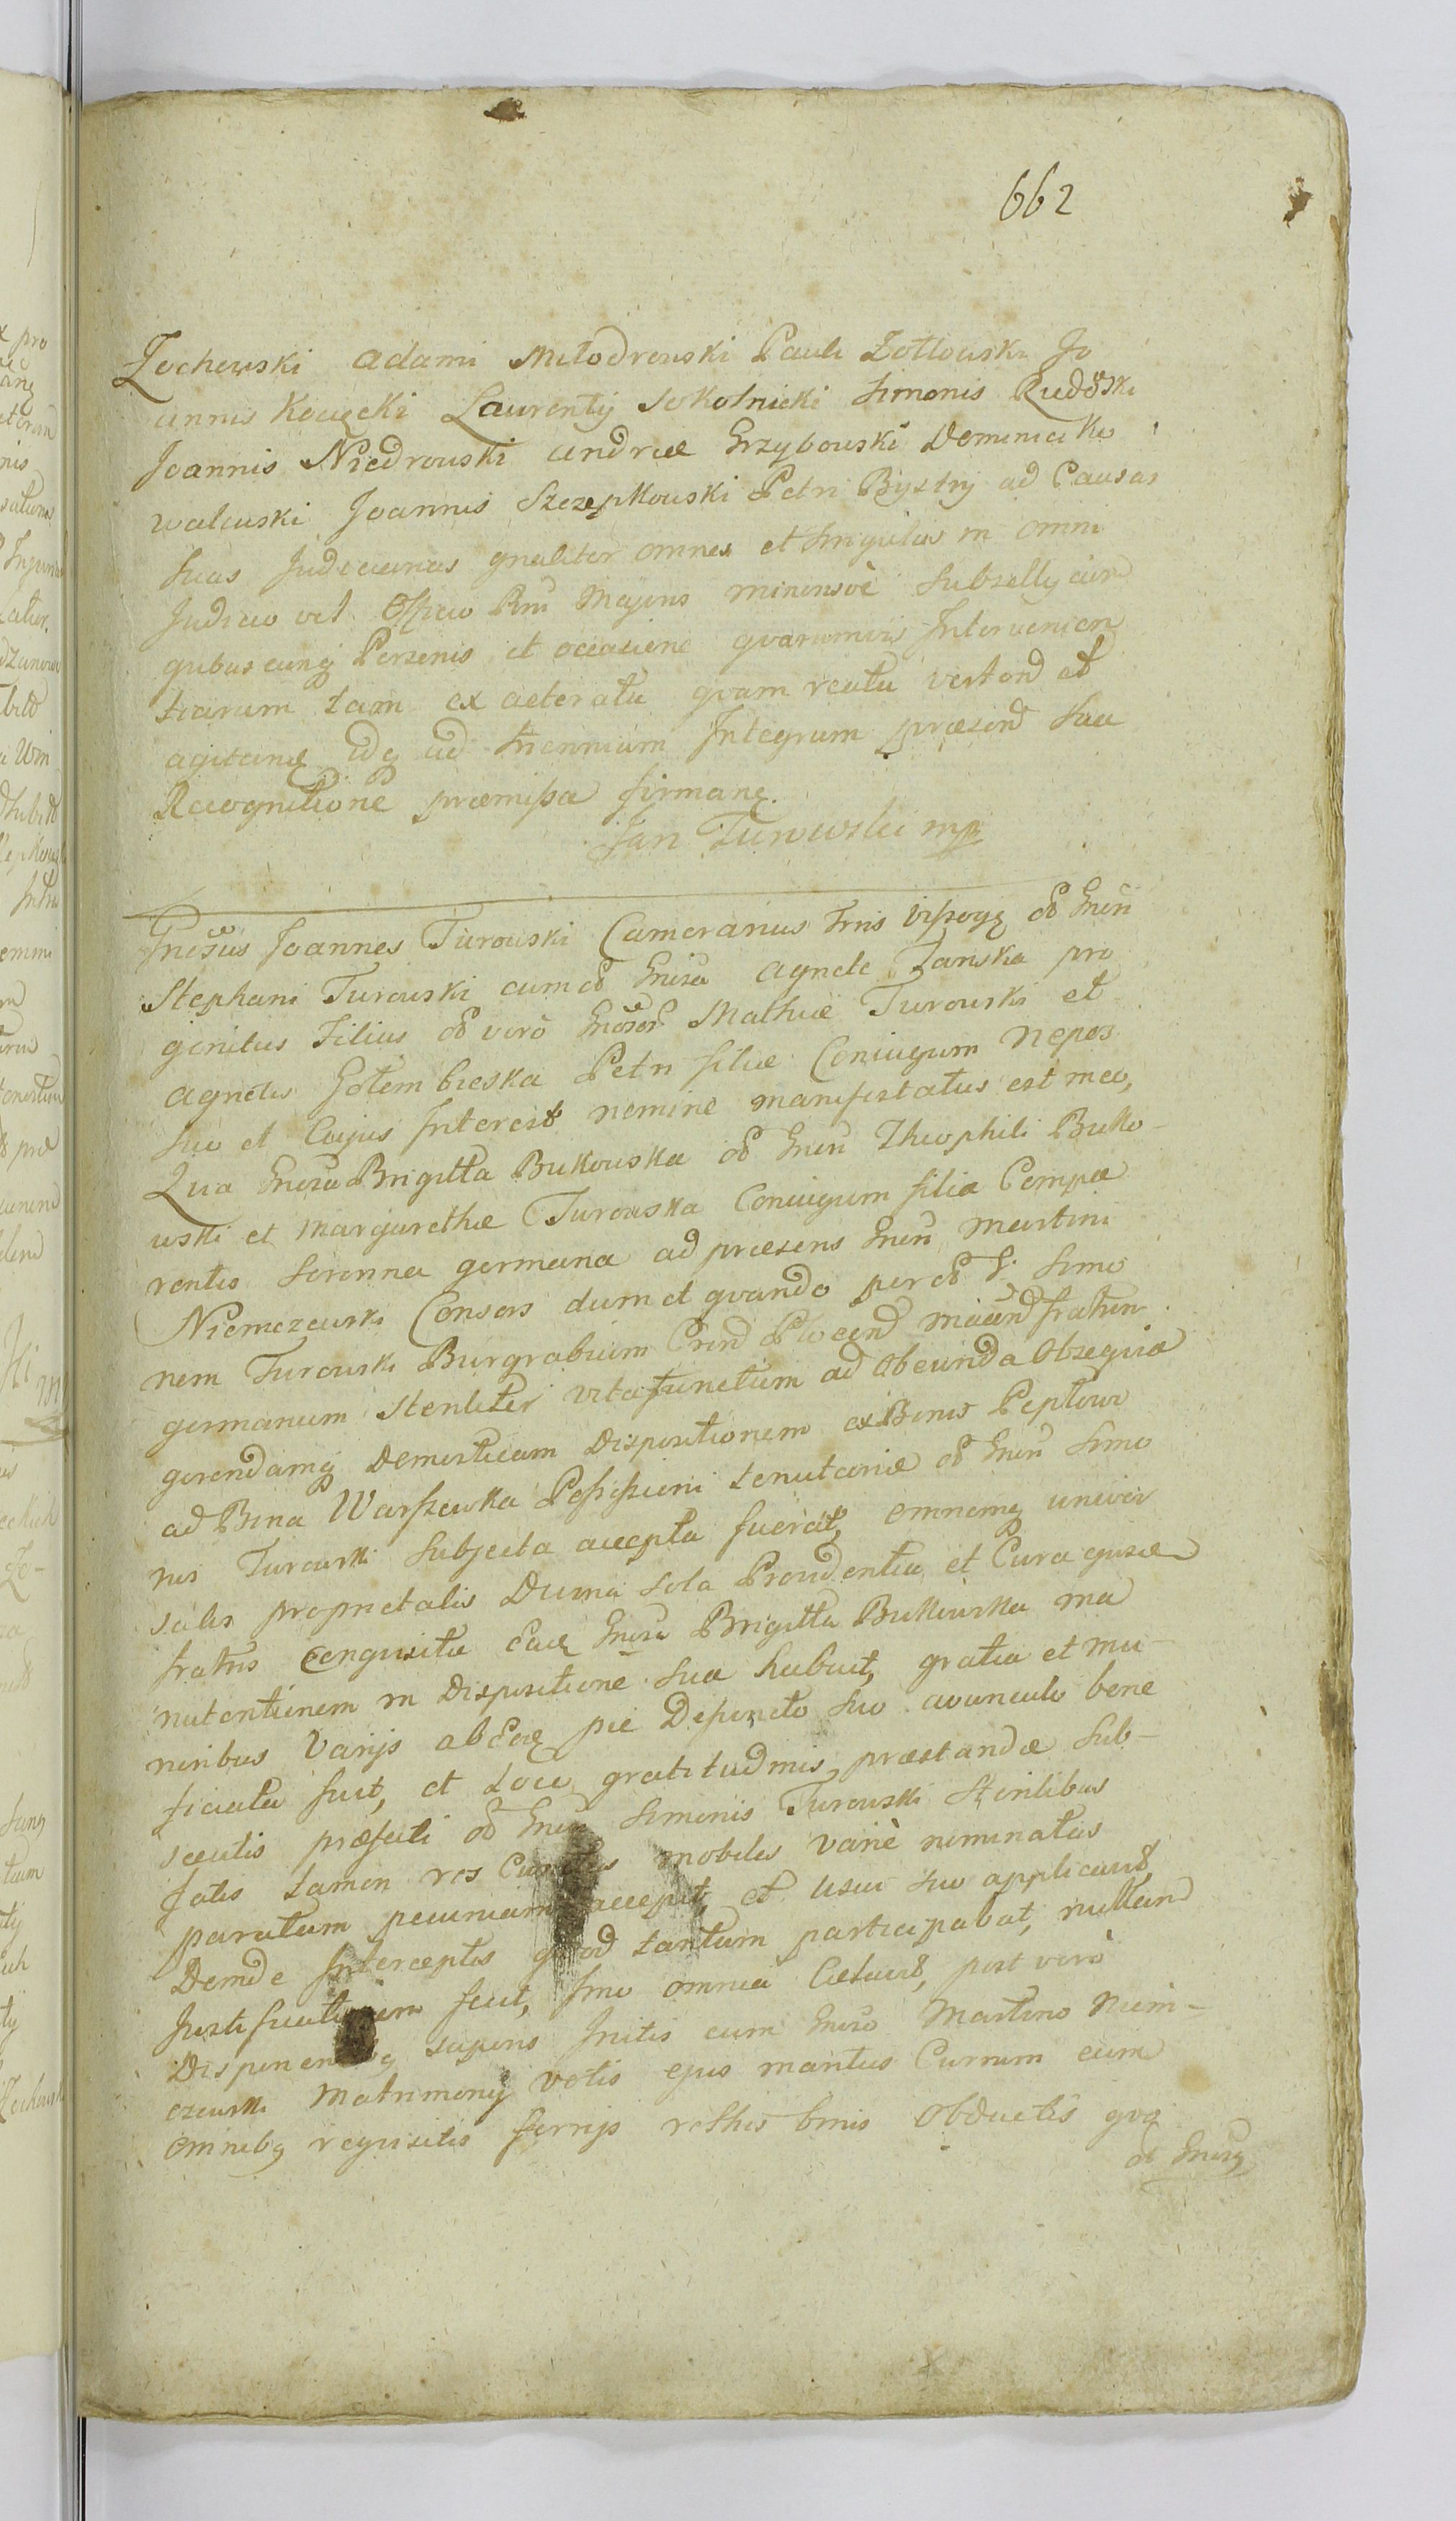 662
Zochowski Adami Młodrowski Pauli Żołtowski Jo
annis Kocięcki Laurentij Sokolnicki Simonis Rudowski
Joannis Niedrowski Andreæ Grzybowski Dominici Ko
walewski Joannis Szczepkowski Petri Bystry ad Causas
suas Judiciarias gnaliter omnes et singulas in omni
Judicio vel Officio Rni Majoris minorisvè Subsellij cum
qvibuscunq Personis et occasione qvarumvis Intervenien
tiarum tam ex actoratu qvam reatu vertend et
agitanę idq ad triennium Integrum præsend sua
Recognitione præmissa firmanę.
Jan Turowski mp
Gnosus Joannes Turowski Camerarius Trris Viszogę od Gnsi
Stephani Turowski cum od Gnsa Agnete Zanska pro
genitus Filius od verò Gnosor Mathiæ Turowski et
Agnetis Gołembieska Petri filiæ Coniugum Nepos
suo et Cujus Interest nomine manifestatus est meo,
Qvia Gnosa Brigitta Bukowska od Gnsi Theophili Buko-
wski et Margarethæ Turowska Coniugum filia Compa
rentis Soronna germana ad præsens Gnsi Martini
Niemczewski Consors dum et qvando per od G. Simo
nem Turowski Burgrabium Crnd Plocend
germanum steriliter vita functum ad obeunda Obseqvia
gerendamq Domesticam Dispositionem ex Bonis Peptowo
ad Bona Warszewka Possessioni tenutariæ od Gnsi Simo
nis Turowski Subjecta accepta fuerat, omnemq univer
salis proprietatis Domu sola Providentia et Cura ejusd
fratris conqvisitæ Eadę Gnosa Brigitta Bukowska ma
nutentionem in Dispositione sua habuit, gratia et mu-
neribus Varijs ab Eodę pie Defuncto suo avunculo bene
ficiata fuit, et Loco gratitudinis præstandæ sub-
secutis præfati od Gnsi Simonis Turowski sterilibus
fatis tamen res mobiles Variè nominatas
paratam pecuniam accepit, et usui suo applicavit,
Deinde Interceptis qvod tantum participabat, nullam
Justificationem fecit, Imo omnia Celavit, post verò
sapens Initis cum Gnoso Martino Niem-
czewski Matrimonij votis ejus maritus Currum cum
Omnibq reqvisitis ferrijs rethis binis Obductis qvę
et Gnosę